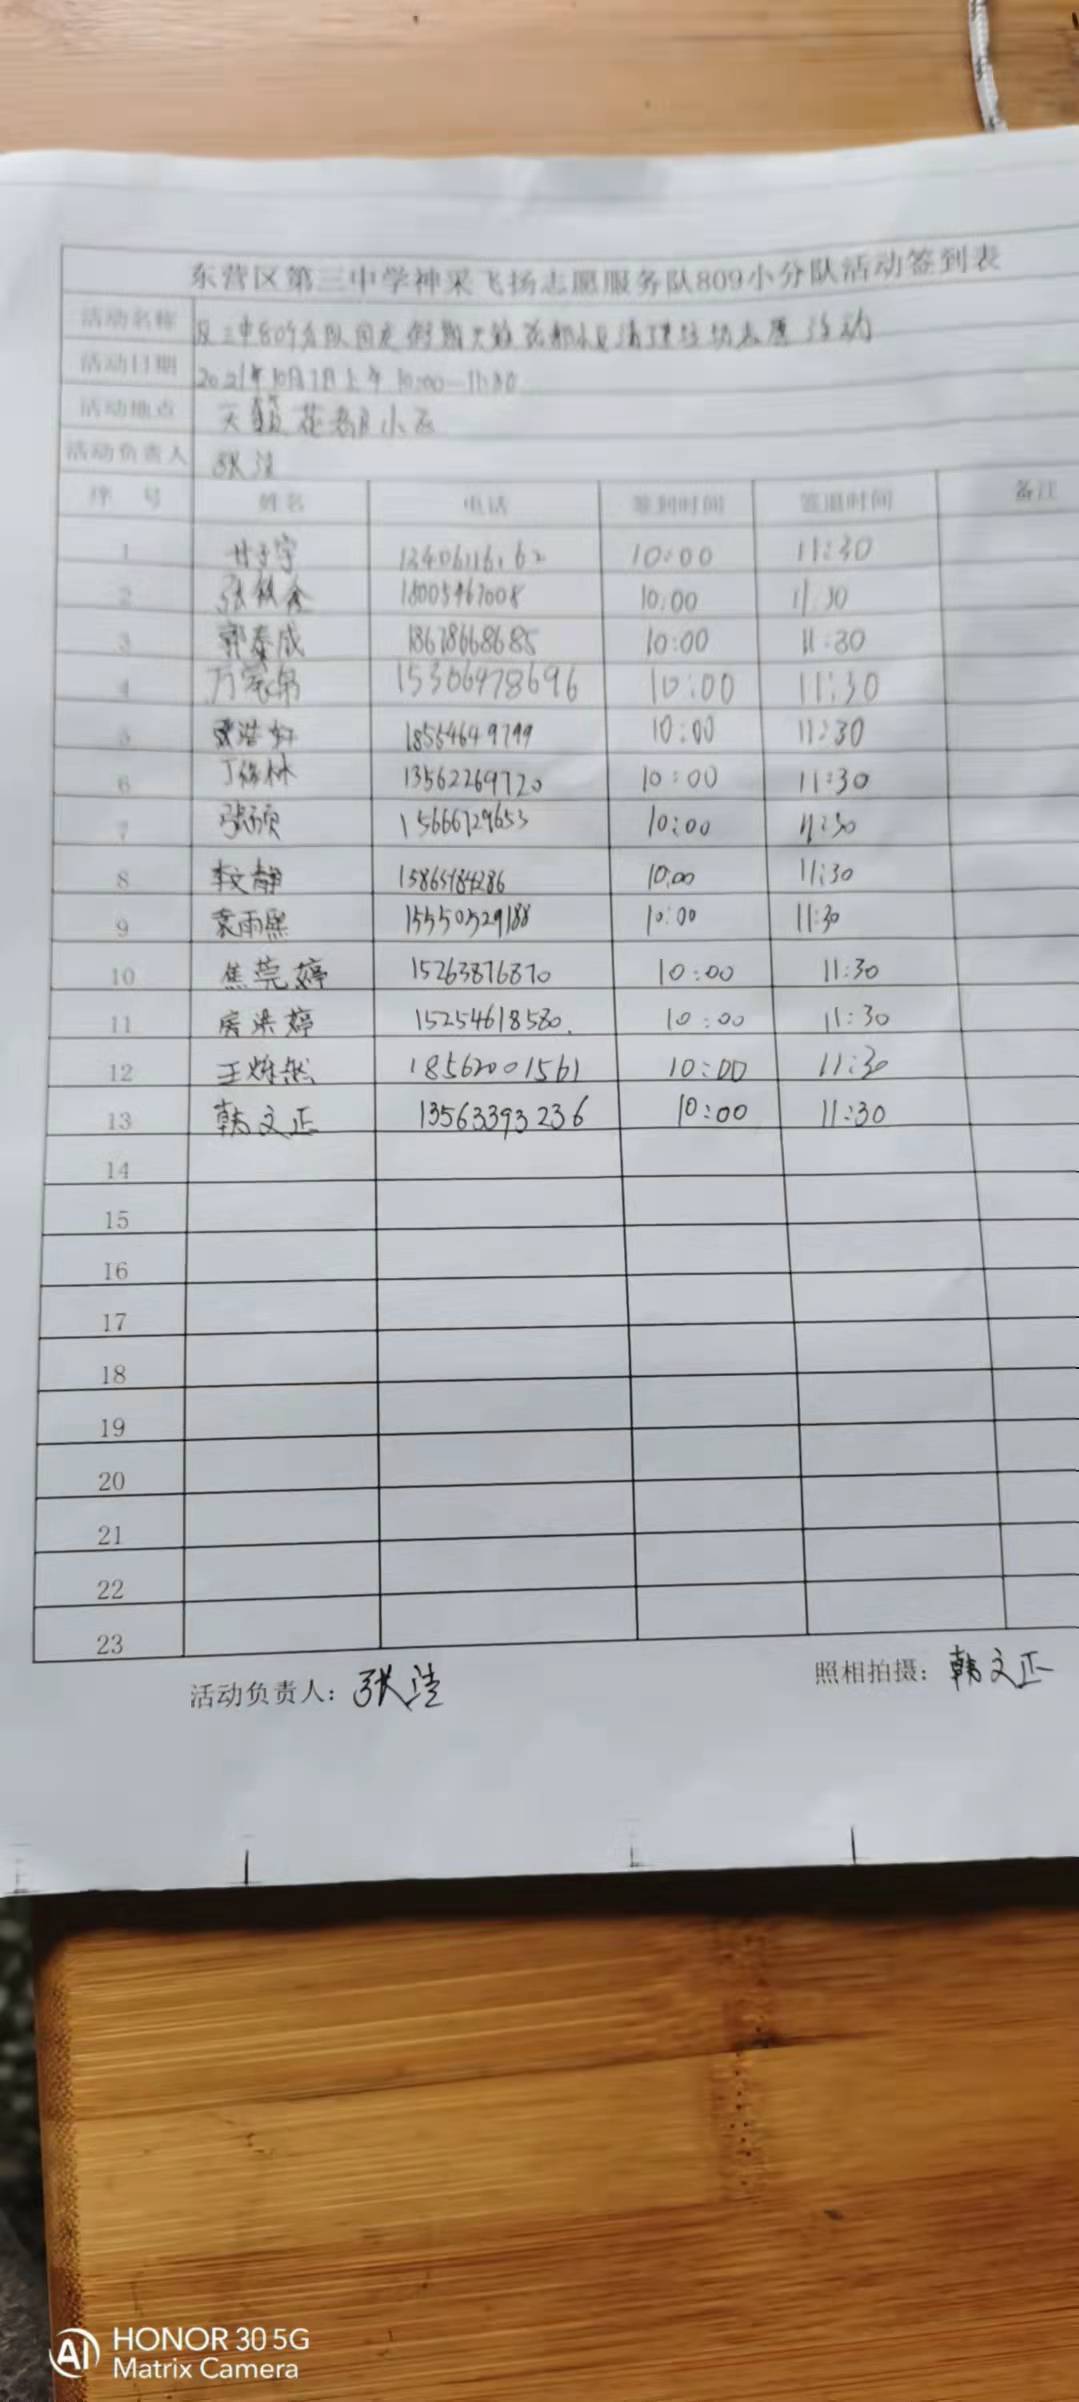 东营区第三中学神采飞扬志愿服务队809小分队活动签到表
活动名称 区三中809分队国庆假期天籁花都小区清理垃圾志愿活动
活动日期 2021年10月7日上午10:00—11:30
活动地点 天籁花都小区
活动负责人 张洁
序号 姓名 电话 签到时间 签退时间 备注
1 甘子宇 13406116162 10:00 11:30
2 18005467008 10:00 11:30
3 郭泰成 18678668685 10:00 11:30
4 万家帛 15306478696 10:00 11:30
5 18564649799 10:00 11:30
6 丁修林 13562269720 10:00 11:30
7 张硕 15666729653 10:00 11:30
8 李文静 15865784286 10:00 11:30
9 袁雨熙 15550529188 10:00 11:30
10 焦莞婷 15263876870 10:00 11:30
11 房洪婷 15254618580. 10:00 11:30
12 王烁然 18562001561 10:00 11:30
13 韩文正 13563393236 10:00 11:30
14
15
16
17
18
19
20
21
22
23
活动负责人：张洁 照相拍摄：韩文正
AI HONOR 30 5G
Matrix Camera